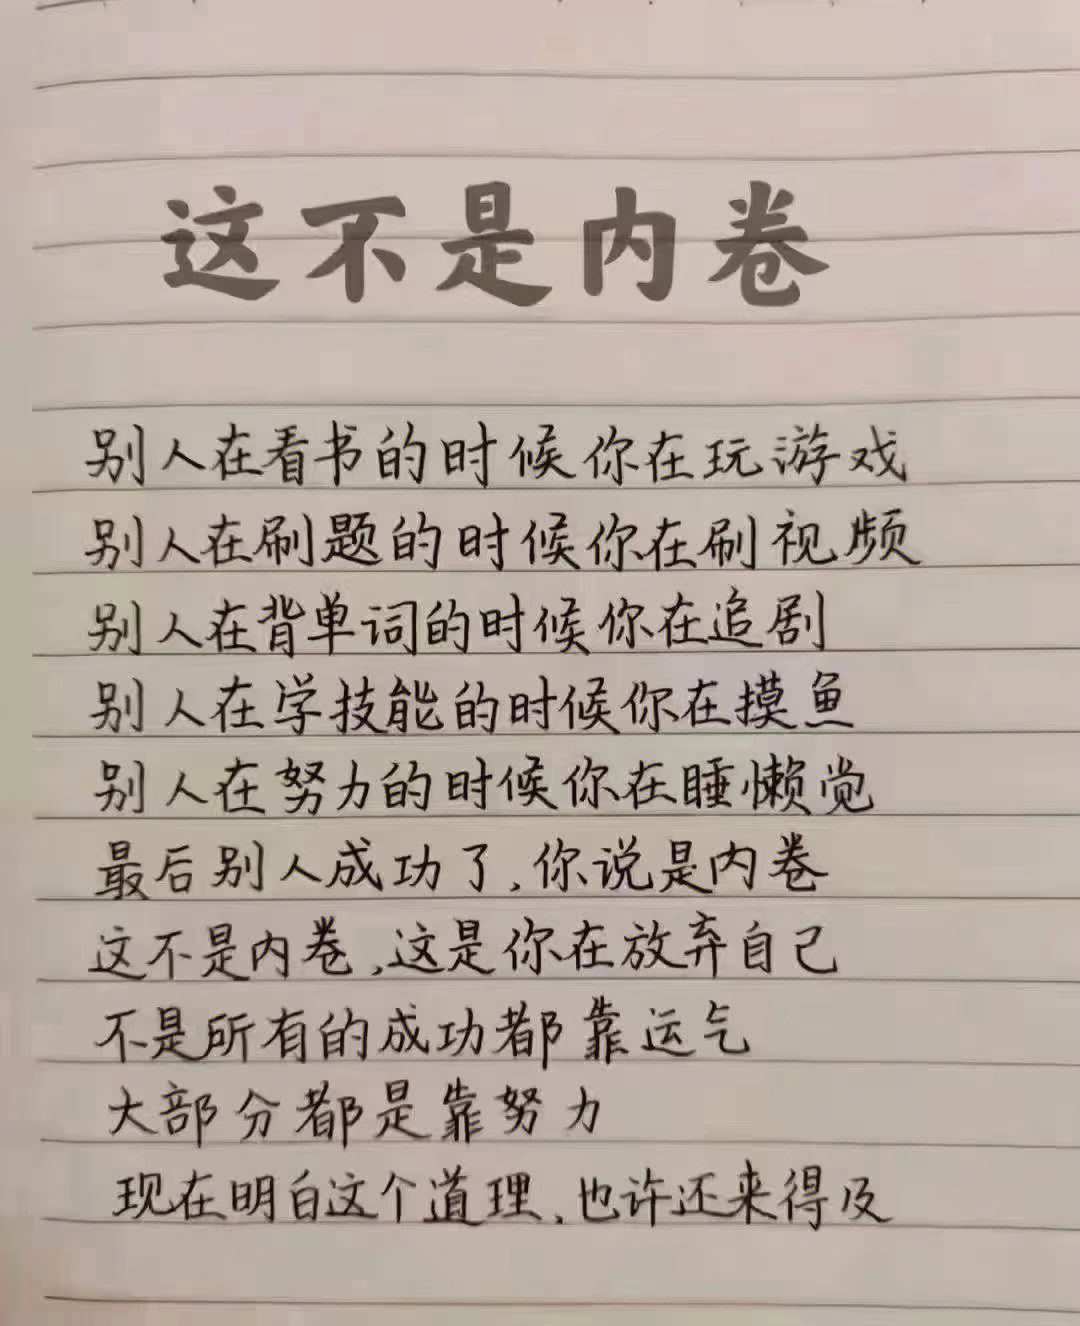 这不是内卷
别人在看书的时候你在玩游戏
别人在刷题的时候你在刷视频
别人在背单词的时候你在追剧
别人在学技能的时候你在摸鱼
别人在努力的时候你在睡懒觉
最后别人成功了,你说是内卷
这不是内卷,这是你在放弃自己
不是所有的成功都靠运气
大部分都是靠努力
现在明白这个道理,也许还来得及